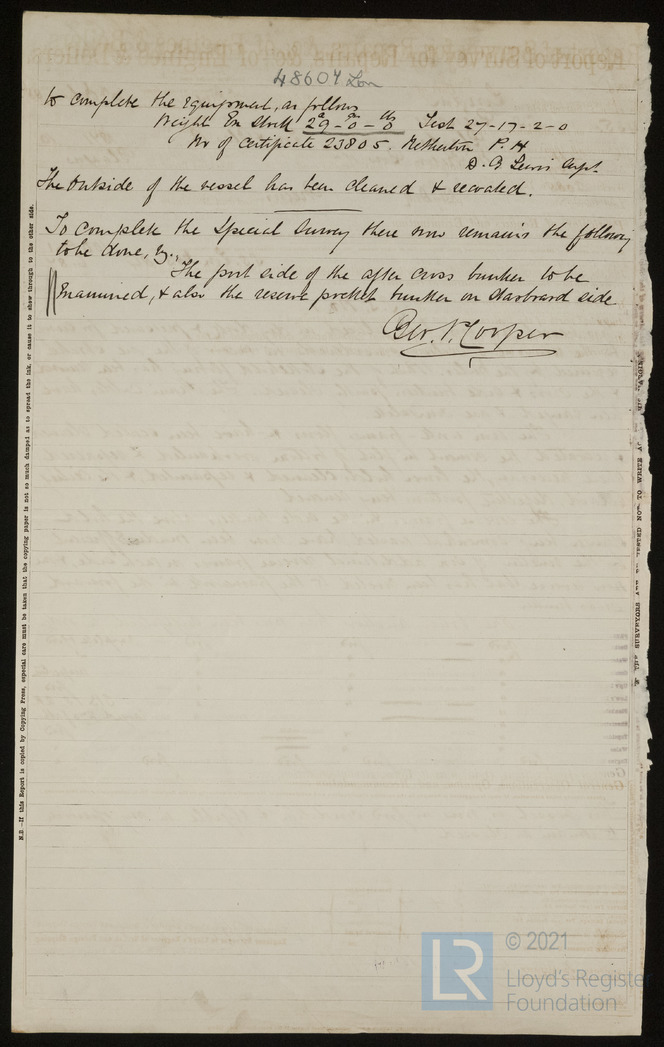 48604 Lon
to complete the Equipment, as follows
Weight Ex Stock 29 - 0 - 0 Test 27-17-2-0
No of Certificate 23805. Netherton P. H
D. G Lewis Supt.
The Outside of the vessel has been cleaned & recoated.
To complete the Special Survey there now remains the following
to be done, viz.,
The port side of the after cross bunker to be
Examined, & also the reserve pocket bunker on starboard side
Geo. N. Cooper
N.B.—If this Report is copied by Copying Press, especial care must be taken that the copying paper is not so much damped as to spread the ink, or cause it to show through to the other side.
© 2021
LR
Lloyd's Register
Foundation